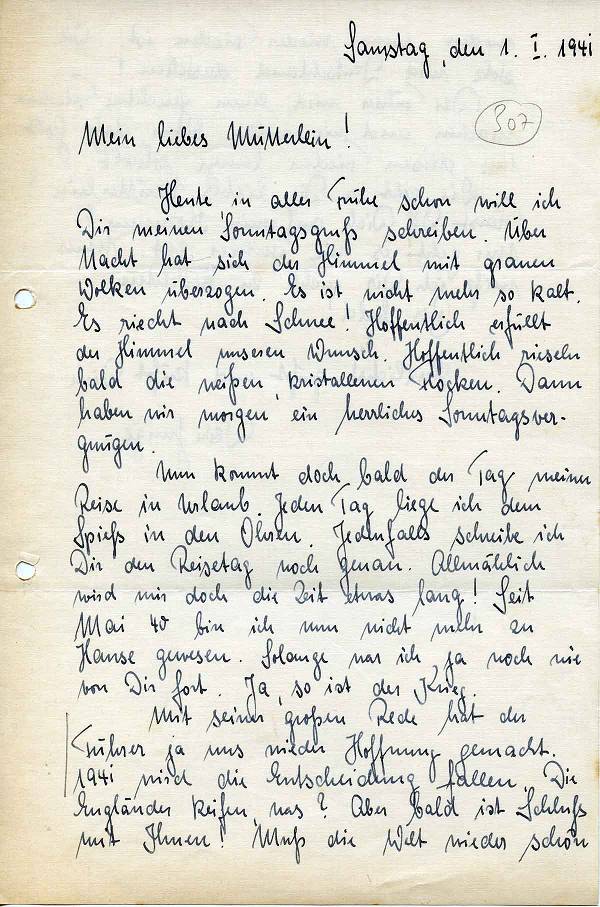 Samstag, den 1. I. 1941
307
Mein liebes Mütterlein!
Heute in aller Frühe schon will ich
Dir meinen Sonntagsgruß schreiben. Über
Nacht hat sich der Himmel mit grauen
Wolken überzogen. Es ist nicht mehr so kalt.
Es riecht nach Schnee! Hoffentlich erfüllt
der Himmel unseren Wunsch. Hoffentlich rieseln
bald die weißen, kristallenen Flocken. Dann
haben wir morgen ein herrliches Sonntagsver-
gnügen.
Nun kommt doch bald der Tag meiner
Reise in Urlaub. Jeden Tag liege ich dem
Spieß in den Ohren. Jedenfalls schreibe ich
Dir den Reisetag noch genau. Allmählich
wird mir doch die Zeit etwas lang! Seit
Mai 40 bin ich nun nicht mehr zu
Hause gewesen. Solange war ich ja noch nie
von Dir fort. Ja, so ist der Krieg.
Mit seiner großen Rede hat der
Führer ja uns wieder Hoffnung gemacht.
1941 wird die Entscheidung fallen. Die
Engländer keifen, was? Aber bald ist Schluß
mit Ihnen! Muß die Welt wieder schön